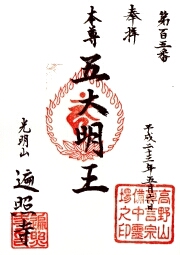 第百五番
奉拝
本尊
五大明王
平成二十三年五月六日
光明山
遍照寺
高野山
真言宗
備中霊
場之印